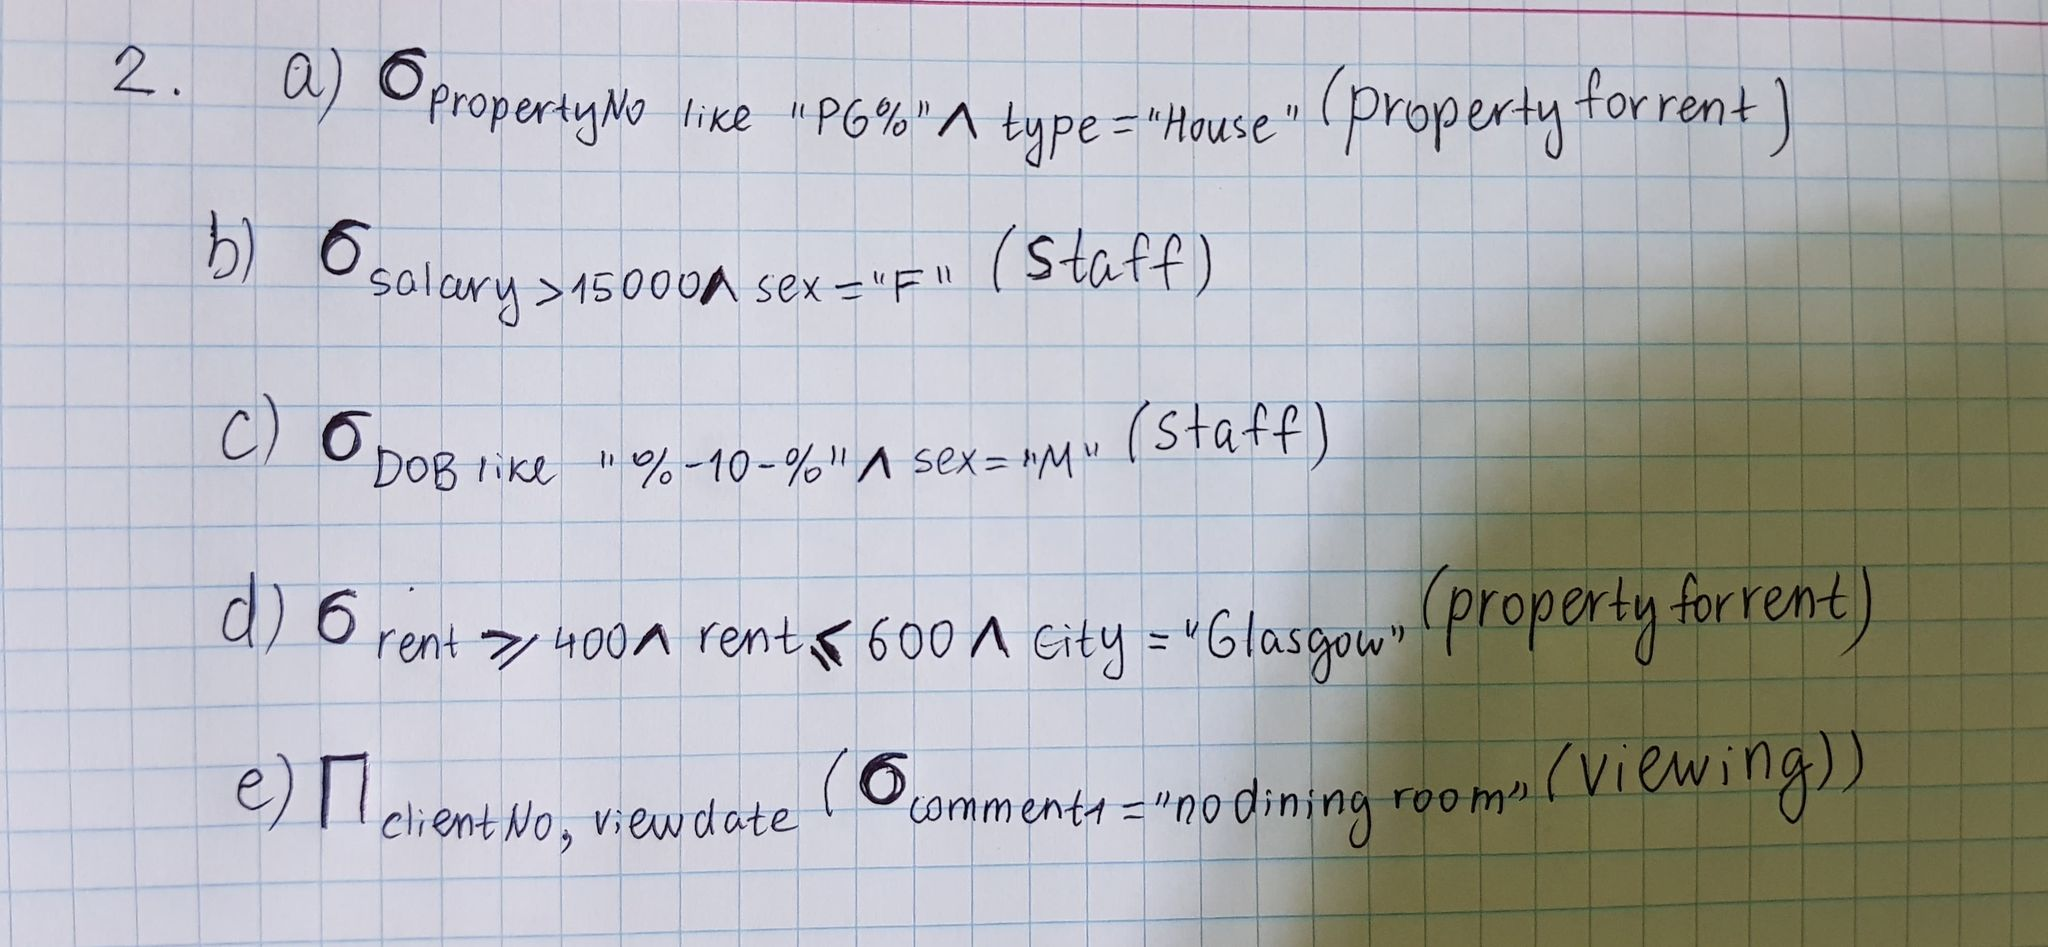 2. a) σ propertyNo like "PG%" ∧ type = "House" (propertyforrent)
b) σ salary > 15000 ∧ sex = "F" (staff)
c) σ DOB like "%-10-%" ∧ sex = "M" (staff)
d) σ rent ⩾ 400 ∧ rent ⩽ 600 ∧ city = "Glasgow" (propertyforrent)
e) Π clientNo, viewdate (σ comment1 = "no dining room" (viewing))